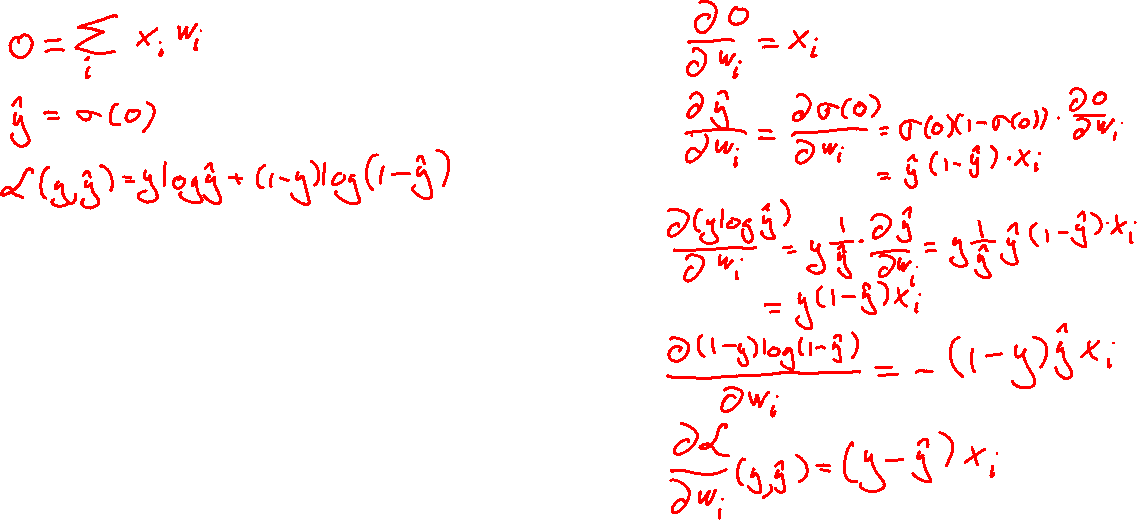 o = ∑_i x_i w_i
ŷ = σ(o)
ℒ(y,ŷ) = y log ŷ + (1-y) log(1-ŷ)
∂o/∂w_i = x_i
∂ŷ/∂w_i = ∂σ(o)/∂w_i = σ(o)(1-σ(o)) · ∂o/∂w_i
= ŷ(1-ŷ)·x_i
∂(y log ŷ)/∂w_i = y 1/ŷ · ∂ŷ/∂w_i = y 1/ŷ ŷ(1-ŷ)·x_i
= y(1-ŷ)x_i
∂(1-y)log(1-ŷ)/∂w_i = -(1-y)ŷ x_i
∂ℒ/∂w_i (y,ŷ) = (y-ŷ) x_i